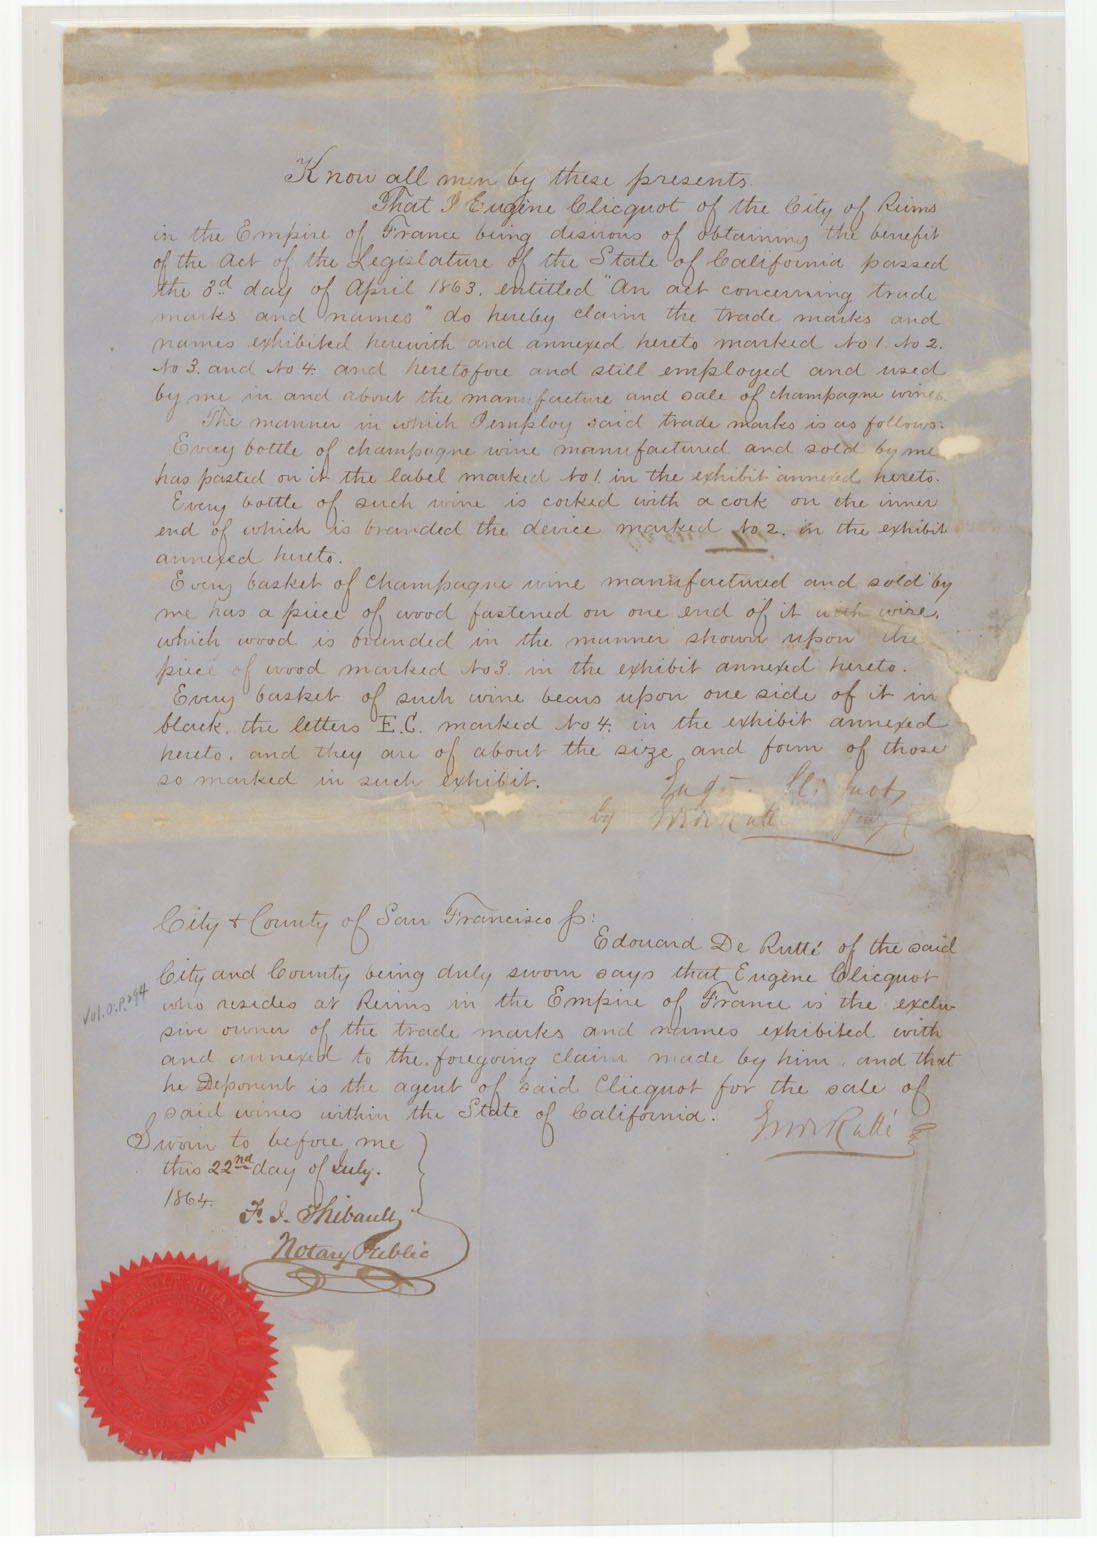 Know all men by these presents.
That I Eugène Clicquot of the City of Reims
in the Empire of France being desirous of obtaining the benefit
of the Act of the Legislature of the State of California passed
the 3rd day of April 1863. entitled "An act concerning trade
marks and names" do hereby claim the trade marks and
names exhibited herewith and annexed hereto marked No 1. No 2.
No 3. and No 4. and heretofore and still employed and used
by me in and about the manufacture and sale of champagne wines.
The manner in which I employ said trade marks is as follows:
Every bottle of champagne wine manufactured and sold by me
has pasted on it the label marked No 1. in the exhibit annexed hereto.
Every bottle of such wine is corked with a cork on the inner
end of which is branded the device marked No 2. in the exhibit
annexed hereto.
Every basket of champagne wine manufactured and sold by
me has a piece of wood fastened on one end of it with wire,
which wood is branded in the manner shown upon the
piece of wood marked No 3. in the exhibit annexed hereto.
Every basket of such wine bears upon one side of it in
black. the letters E.C. marked No 4. in the exhibit annexed
hereto. and they are of about the size and form of those
so marked in such exhibit.
by
City & County of San Francisco ss:
Edouard De Rutté of the said
City and County being duly sworn says that Eugène Clicquot
who resides at Reims in the Empire of France is the exclu-
sive owner of the trade marks and names exhibited with
and annexed to the foregoing claim made by him. and that
he Deponent is the agent of said Clicquot for the sale of
said wines within the State of California.
Rutté
Sworn to before me
this 22nd day of July.
1864.
F. J. Thibault
Notary Public
Vol. O. P. 294